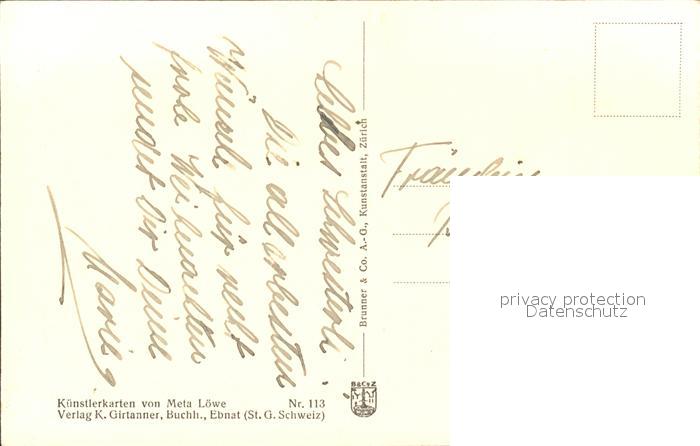 Liebes Schwesterli!
Die allerbesten
Wünsche für recht
frohe Weihnachten
sendet Dir Deine
Marie
Fräulein
Brunner & Co. A.-G., Kunstanstalt, Zürich
B&C⁰Z
Künstlerkarten von Meta Löwe Nr. 113
Verlag K. Girtanner, Buchh., Ebnat (St. G. Schweiz)
privacy protection
Datenschutz